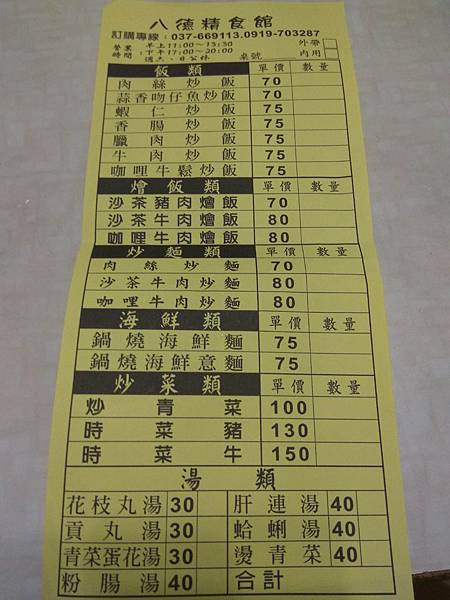 八德精食館
訂購專線：037-669113.0919-703287
營業時間：早上11:00~13:30 下午17:00~20:00 週六、日公休 桌號 外帶 內用
飯類 單價 數量
肉絲炒飯 70
蒜香吻仔魚炒飯 70
蝦仁炒飯 75
香腸炒飯 75
臘肉炒飯 75
牛肉炒飯 75
咖哩牛鬆炒飯 75
燴飯類 單價 數量
沙茶豬肉燴飯 70
沙茶牛肉燴飯 80
咖哩牛肉燴飯 80
炒麵類 單價 數量
肉絲炒麵 70
沙茶牛肉炒麵 80
咖哩牛肉炒麵 80
海鮮類 單價 數量
鍋燒海鮮麵 75
鍋燒海鮮意麵 75
炒菜類 單價 數量
炒青菜 100
時菜豬 130
時菜牛 150
湯類
花枝丸湯 30 肝連湯 40
貢丸湯 30 蛤蜊湯 40
青菜蛋花湯 30 燙青菜 40
粉腸湯 40 合計